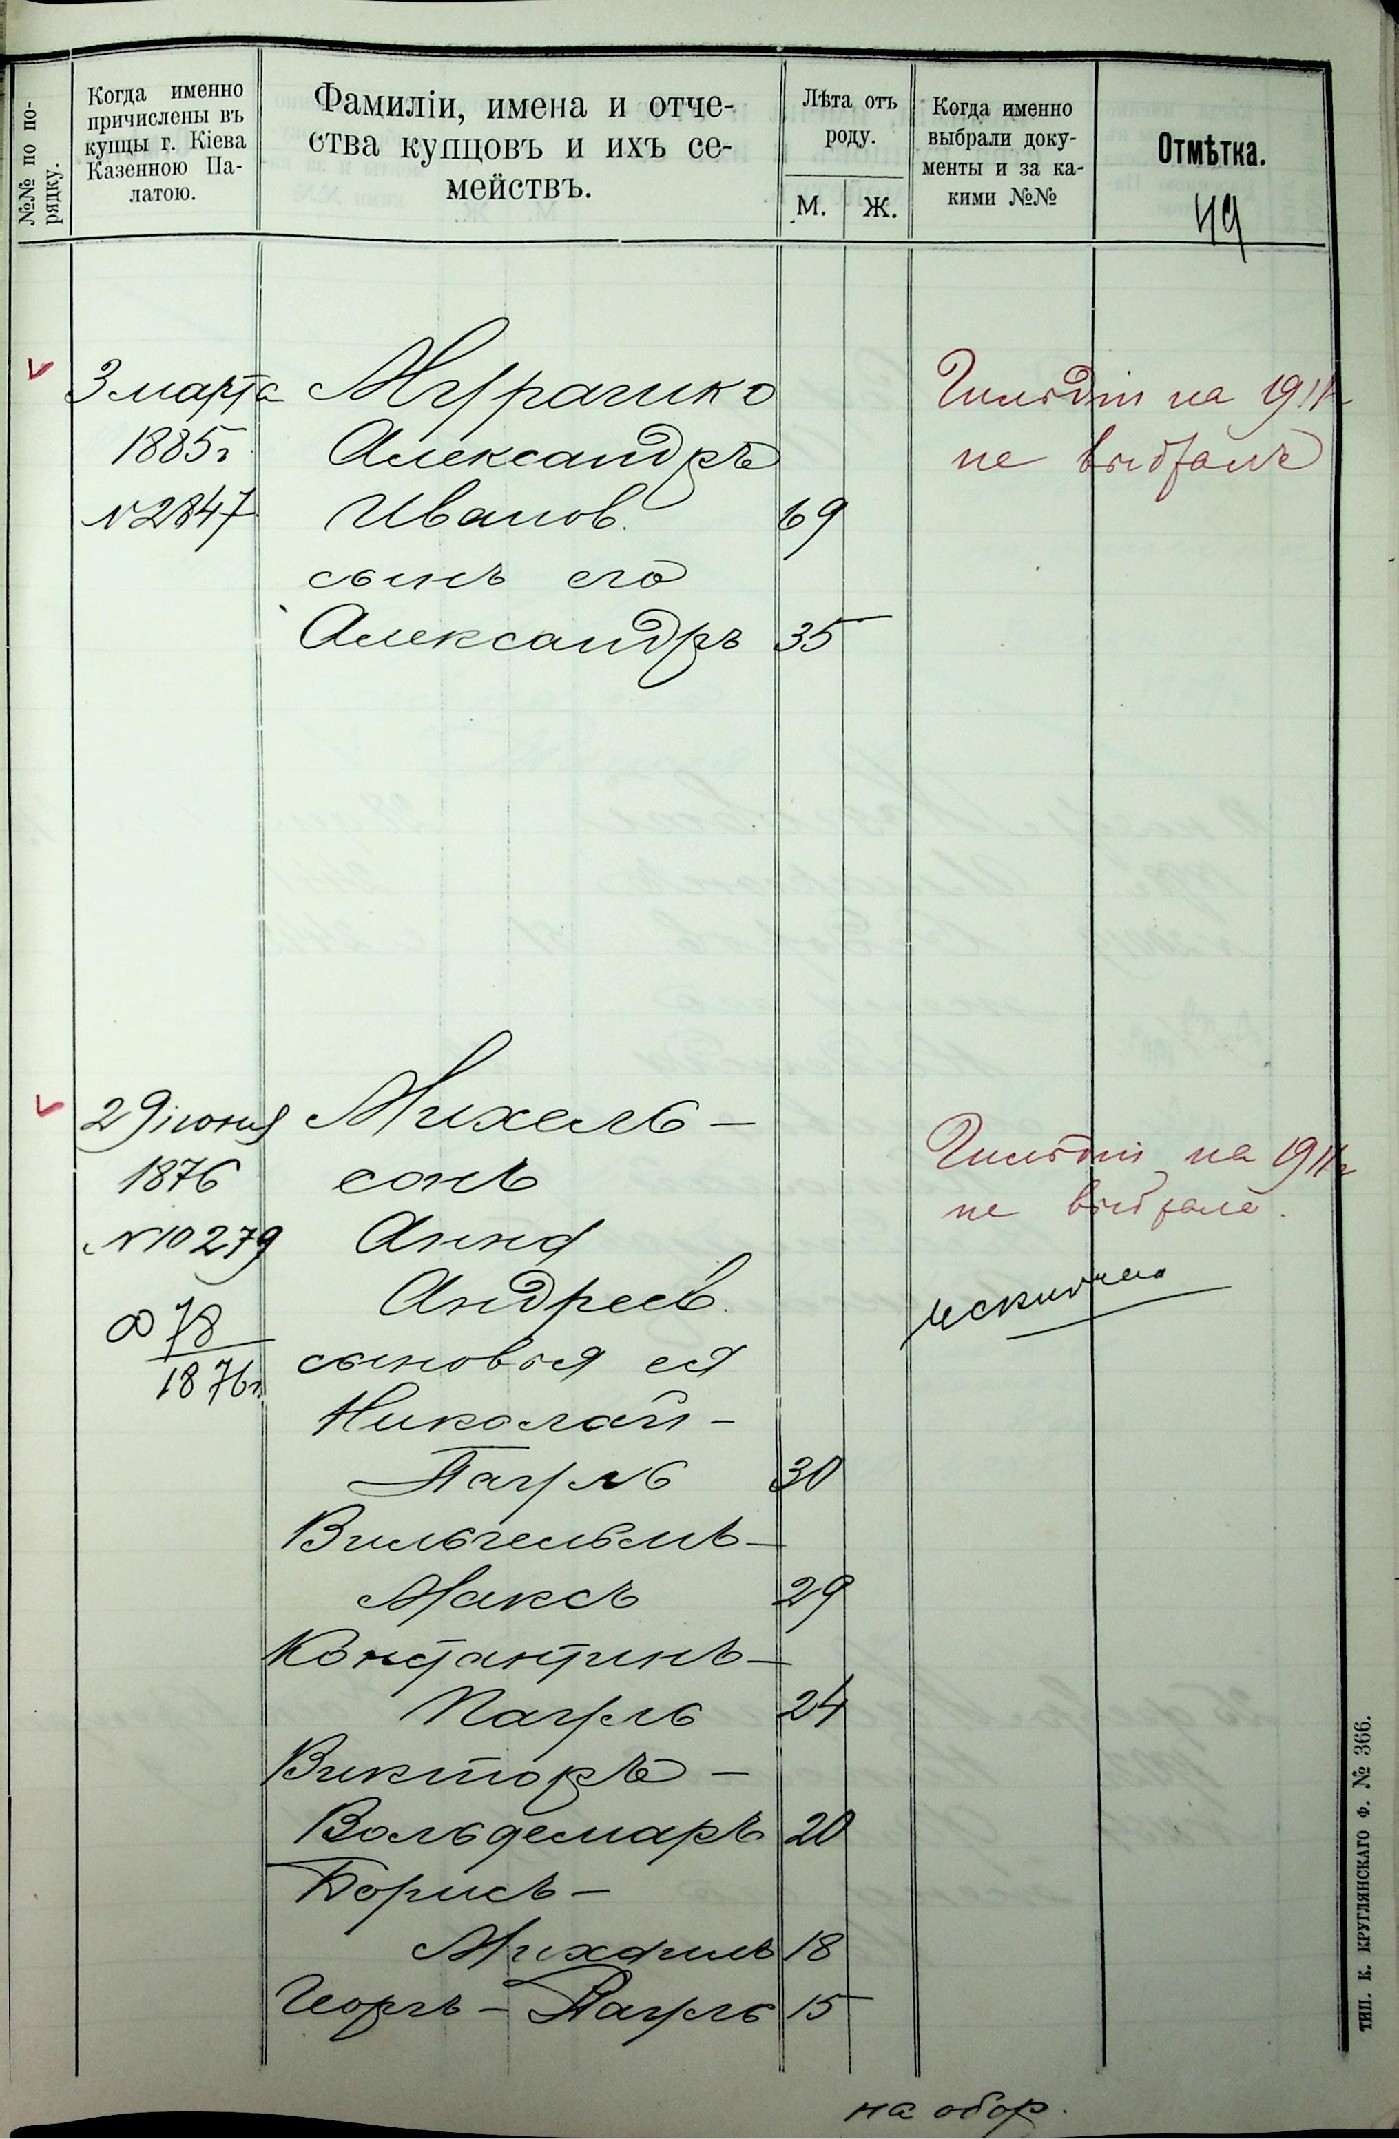 №№ по по-
рядку.
Когда именно
причислены въ
купцы г. Кіева
Казенною Па-
латою.
Фамиліи, имена и отче-
ства купцовъ и ихъ се-
мействъ.
Лѣта отъ
роду.
М.
Ж.
Когда именно
выбрали доку-
менты и за ка-
кими №№
Отмѣтка.
49
3 марта
1885 г
№ 2847
Мурашко
Александръ
Иванов. 69
сынъ его
Александръ 35
Гильдіи на 1911 г
не выбралъ
29 іюня
1876
№ 10279
78
1876 г.
Михель-
сонъ
Анна
Андреев.
сыновья ея
Николай-
Пауль 30
Вильгельмъ-
Максъ 29
Константинъ-
Пауль 24
Викторъ-
Вольдемаръ 20
Борисъ-
Михаилъ 18
Георгъ - Пауль 15
Гильдіи на 1911 г
не выбрала.
исключена
на обор.
тип. К. Круглянскаго Ф. № 366.